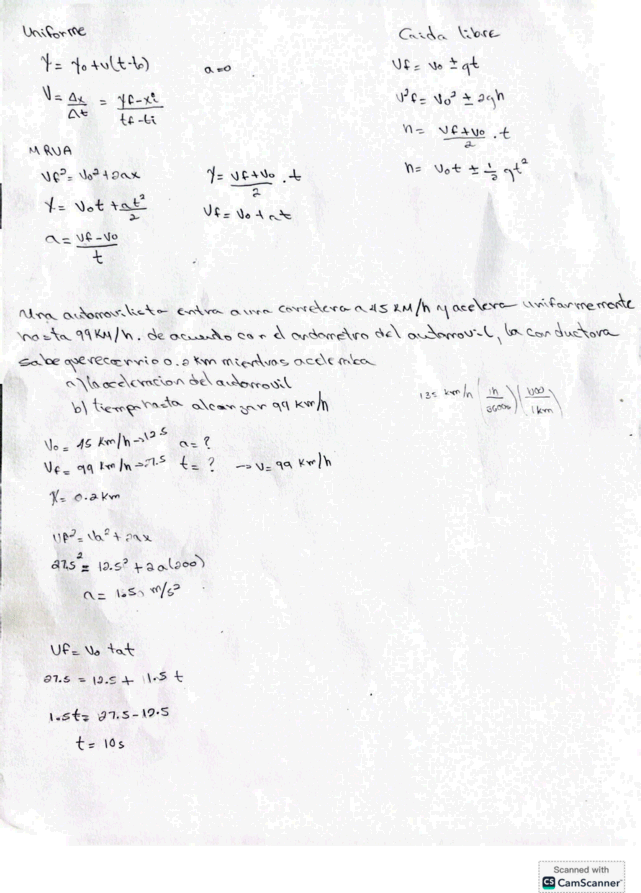 Uniforme
X = x0 + v(t-t0)
a=0
V = Δx/Δt = xf-xi/tf-ti
MRUA
Vf² = Vo² + 2ax
X = Vf+Vo/2 . t
X = Vot + at²/2
Vf = Vo + at
a = Vf-Vo/t
Caida libre
Vf = Vo ± gt
V²f = Vo² ± 2gh
h = Vf+Vo/2 . t
h = Vot ± 1/2 gt²
Una automovilista entra a una carretera a 45 KM/h y acelera uniformemente
hasta 99 KM/h. de acuerdo con el andometro del automovil, la conductora
sabe que recorrio 0.2 km mientras aceleraba
a) la aceleracion del automovil
b) tiempo hasta alcanzar 99 km/h
km/h (1h/3600s) ( /1km)
Vo = 45 km/h → 12.5 a = ?
Vf = 99 km/h → 27.5 t = ? → V = 99 km/h
X = 0.2 km
Vf² = Vo² + 2ax
27.5² = 12.5² + 2a(200)
a = m/s²
Vf = Vo + at
27.5 = 12.5 + 1.5 t
1.5t = 27.5 - 12.5
t = 10s
Scanned with
CS CamScanner